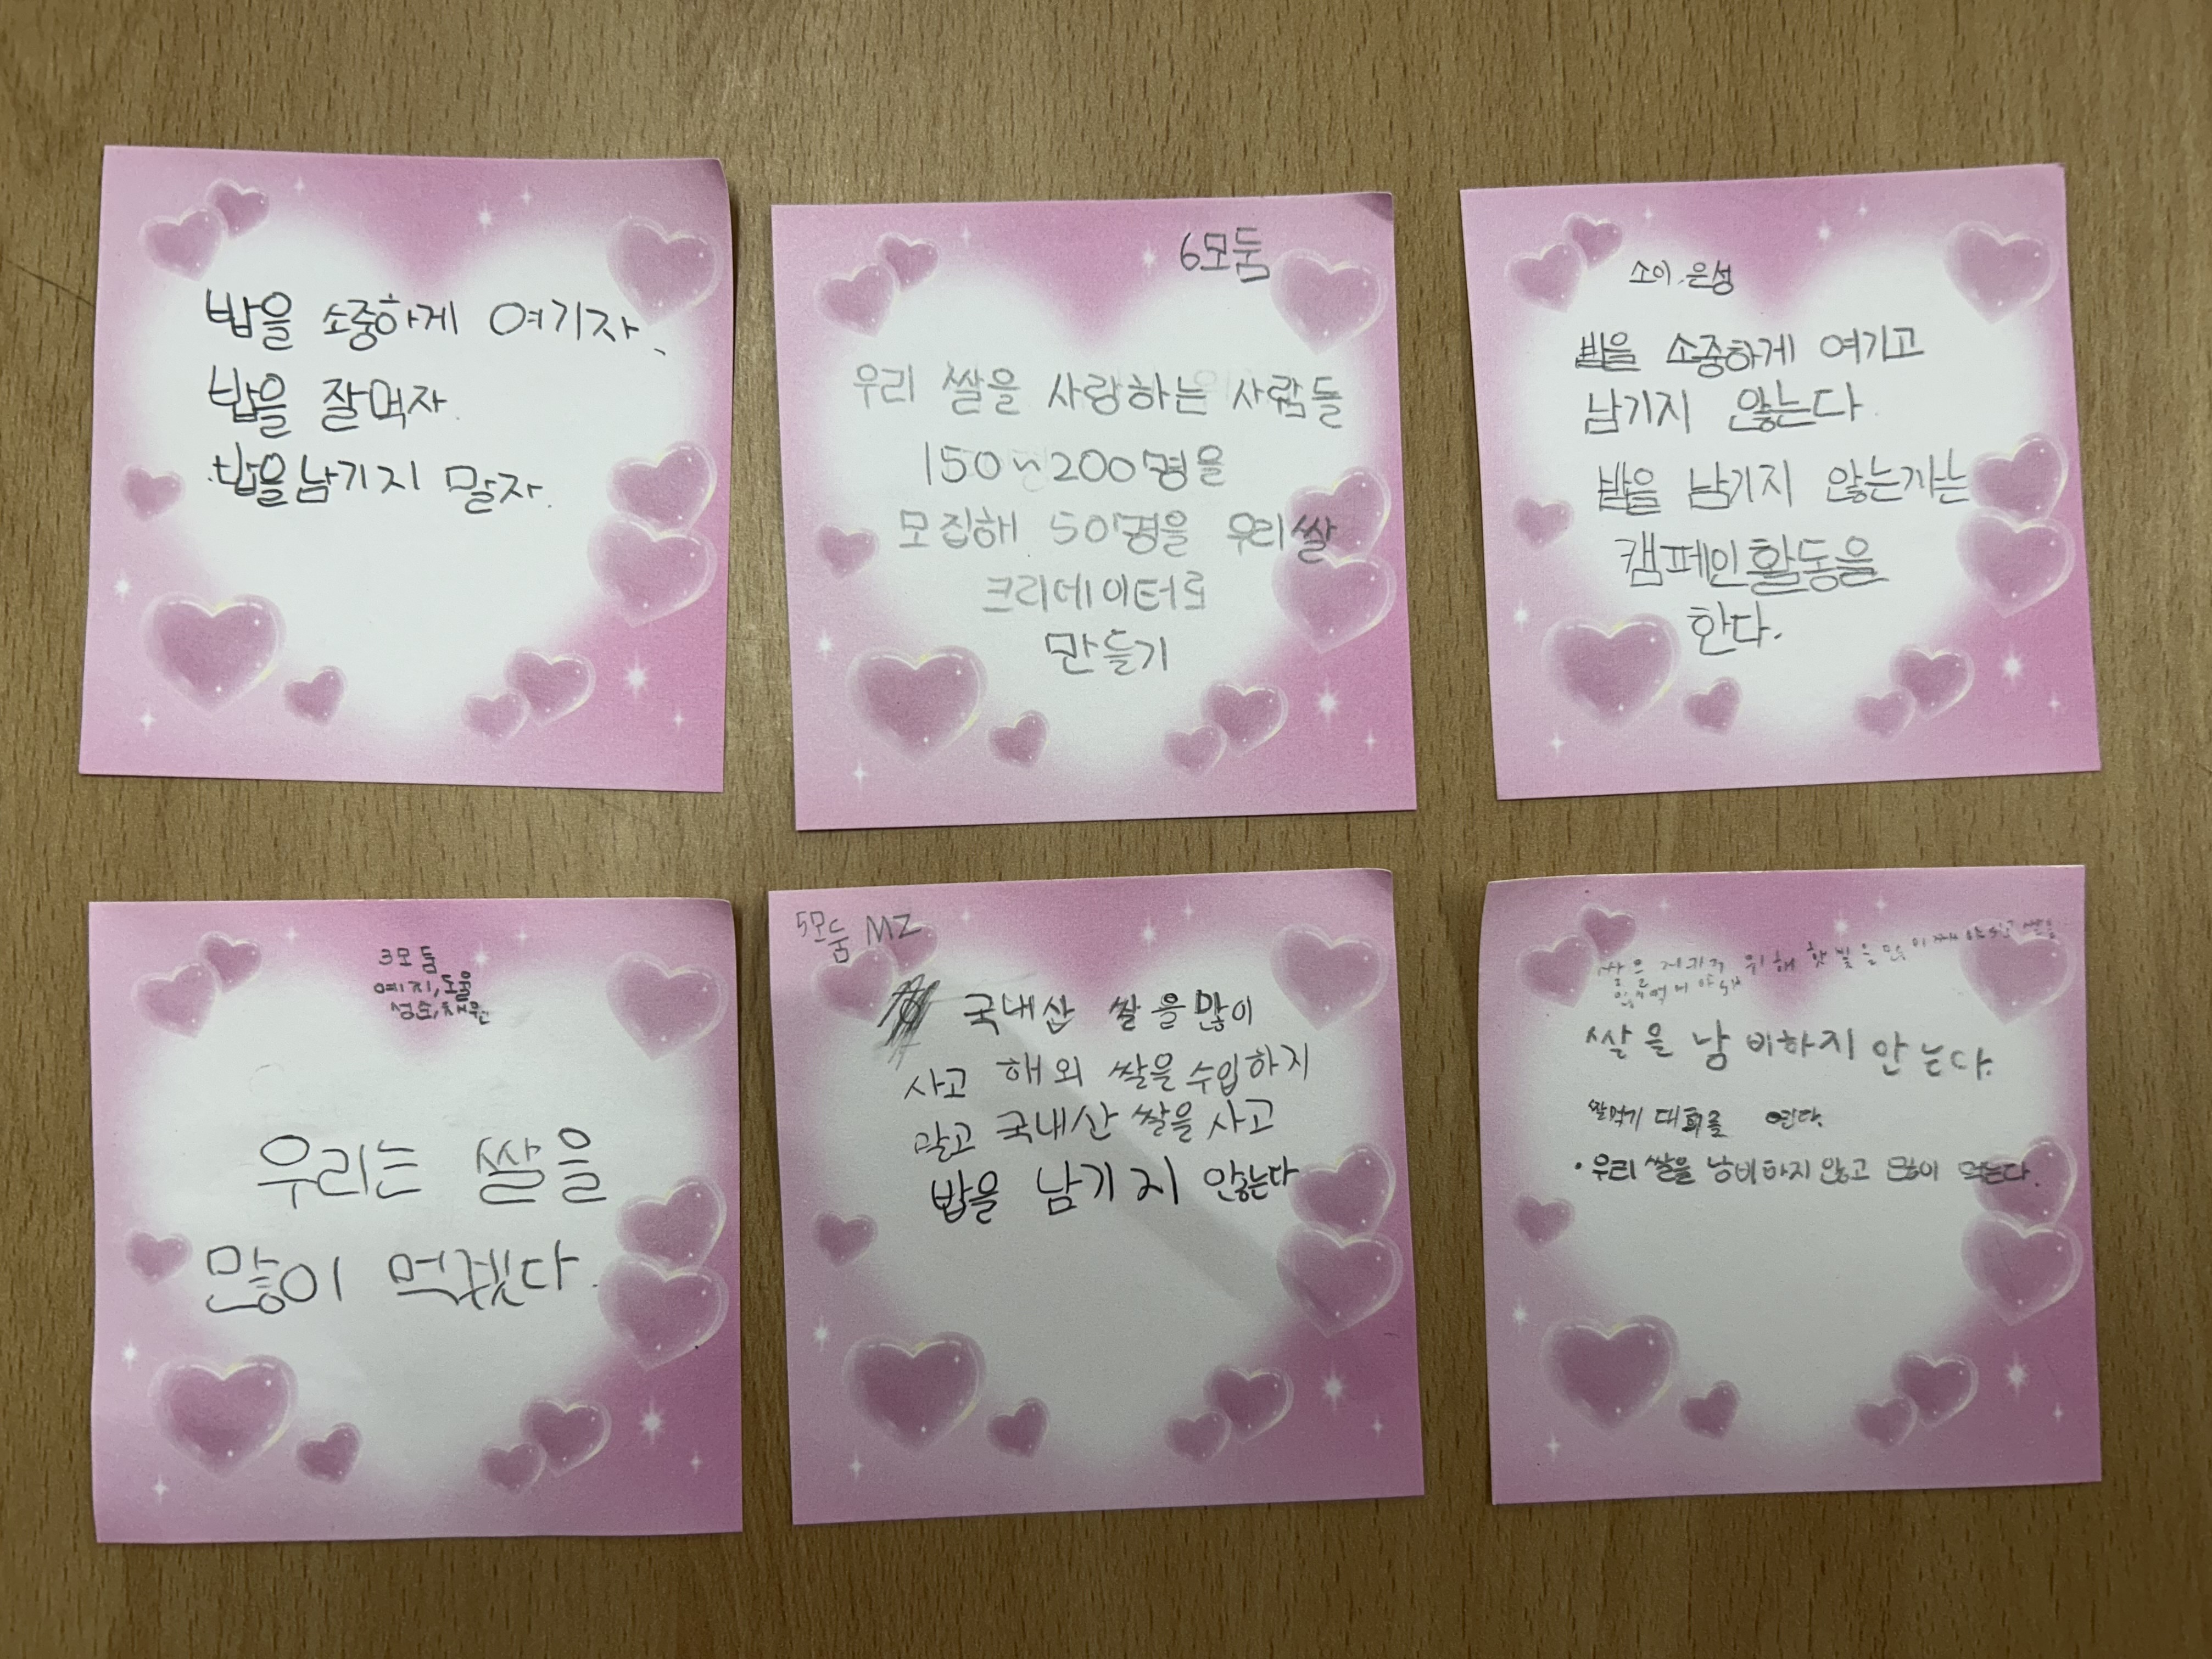 밥을 소중하게 여기자.
밥을 잘먹자.
밥을남기지 말자.
6모둠
우리 쌀을 사랑하는 사람들
150~200명을
모집해 50명을 우리쌀
크리에이터로
만들기
소이 은성
밥을 소중하게 여기고
남기지 않는다
밥을 남기지 않는가는
캠페인활동을
한다.
3모둠
예지,도율
성호,채원
우리는 쌀을
많이 먹겠다.
5모둠 MZ
국내산 쌀을많이
사고 해외 쌀을수입하지
말고 국내산 쌀을사고
밥을 남기지 않는다
쌀을 지키기 위해 햇빛을
쌀을 남비하지 안는다.
쌀먹기 대회를 연다.
• 우리 쌀을 낭비하지 않고 많이 먹는다.